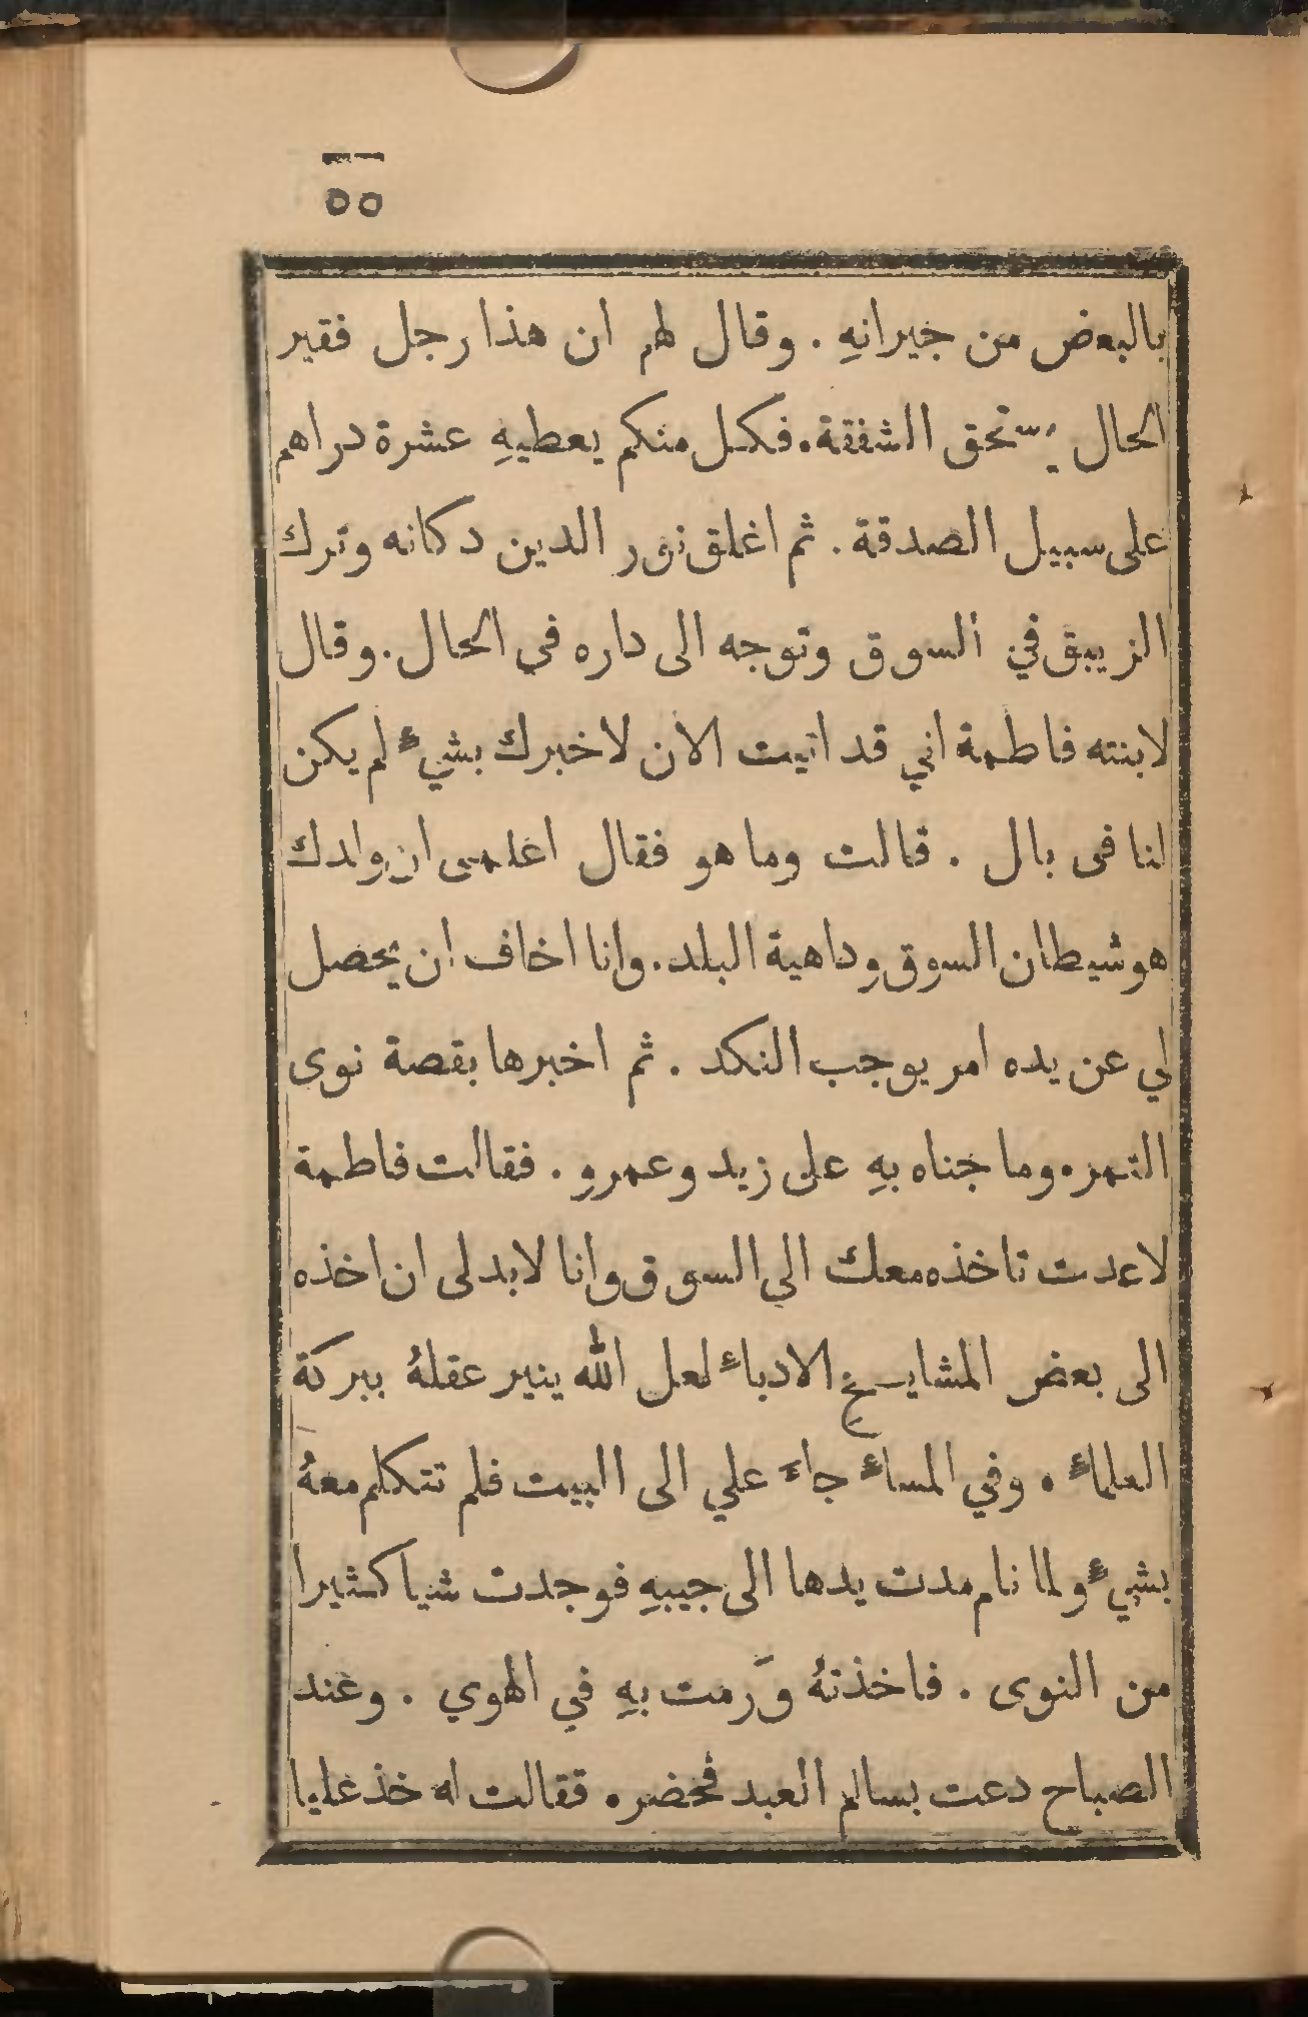 ٥٥
بالبعض من جيرانهِ . وقال لهم ان هذا رجل فقير
الحال يستحق الشفقة . فكل منكم يعطيهِ عشرة دراهم
على سبيل الصدقة . ثم اغلق نور الدين دكانه وترك
الزيبق في السوق وتوجه الى داره في الحال . وقال
لابنته فاطمة اني قد اتيت الان لاخبرك بشيءٍ لم يكن
لنا فى بال . قالت وما هو فقال اعلمى ان ولدك
هو شيطان السوق وداهية البلد . وانا اخاف ان يحصل
لي عن يده امر يوجب النكد . ثم اخبرها بقصة نوى
التمر . وما جناه بهِ على زيد وعمروِ . فقالت فاطمة
لا عدت تاخذه معك الي السوق وانا لا بد لى ان اخذه
الى بعض المشايخ الادباءِ لعل الله ينير عقلهُ ببركة
العلماءِ . وفي المساءِ جاءَ علي الى البيت فلم تتكلم معهُ
بشيءٍ ولما نام مدت يدها الى جيبهِ فوجدت شيا كثيرا
من النوى . فاخذتهُ وَرمت بهِ في الهوي . وعند
الصباح دعت بسالم العبد فحضر . فقالت له خذ عليا